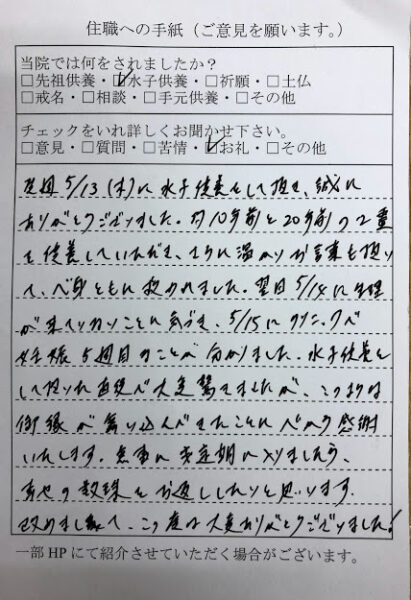 住職への手紙（ご意見を願います。）
当院では何をされましたか？
□先祖供養・☑水子供養・□祈願・□土仏
□戒名・□相談・□手元供養・□その他
チェックをいれ詳しくお聞かせ下さい。
□意見・□質問・□苦情・☑お礼・□その他
5/13(木)に水子供養をして頂き、誠に
ありがとうございました。約10年前と20年前の2霊
を供養していただき、さらに温かいお言葉も頂い
て、心身ともに救われました。翌日5/14に生理
が来ていないことに気づき、5/15にクリニックで
妊娠5週目のことが分かりました。水子供養を
して頂いた直後で大変驚きましたが、このような
御縁が舞い込んできたことに心から感謝
いたします。無事に安定期に入りましたら、
数珠をお返ししたいと思います。
改めまして、この度は大変ありがとうございました!
一部HPにて紹介させていただく場合がございます。